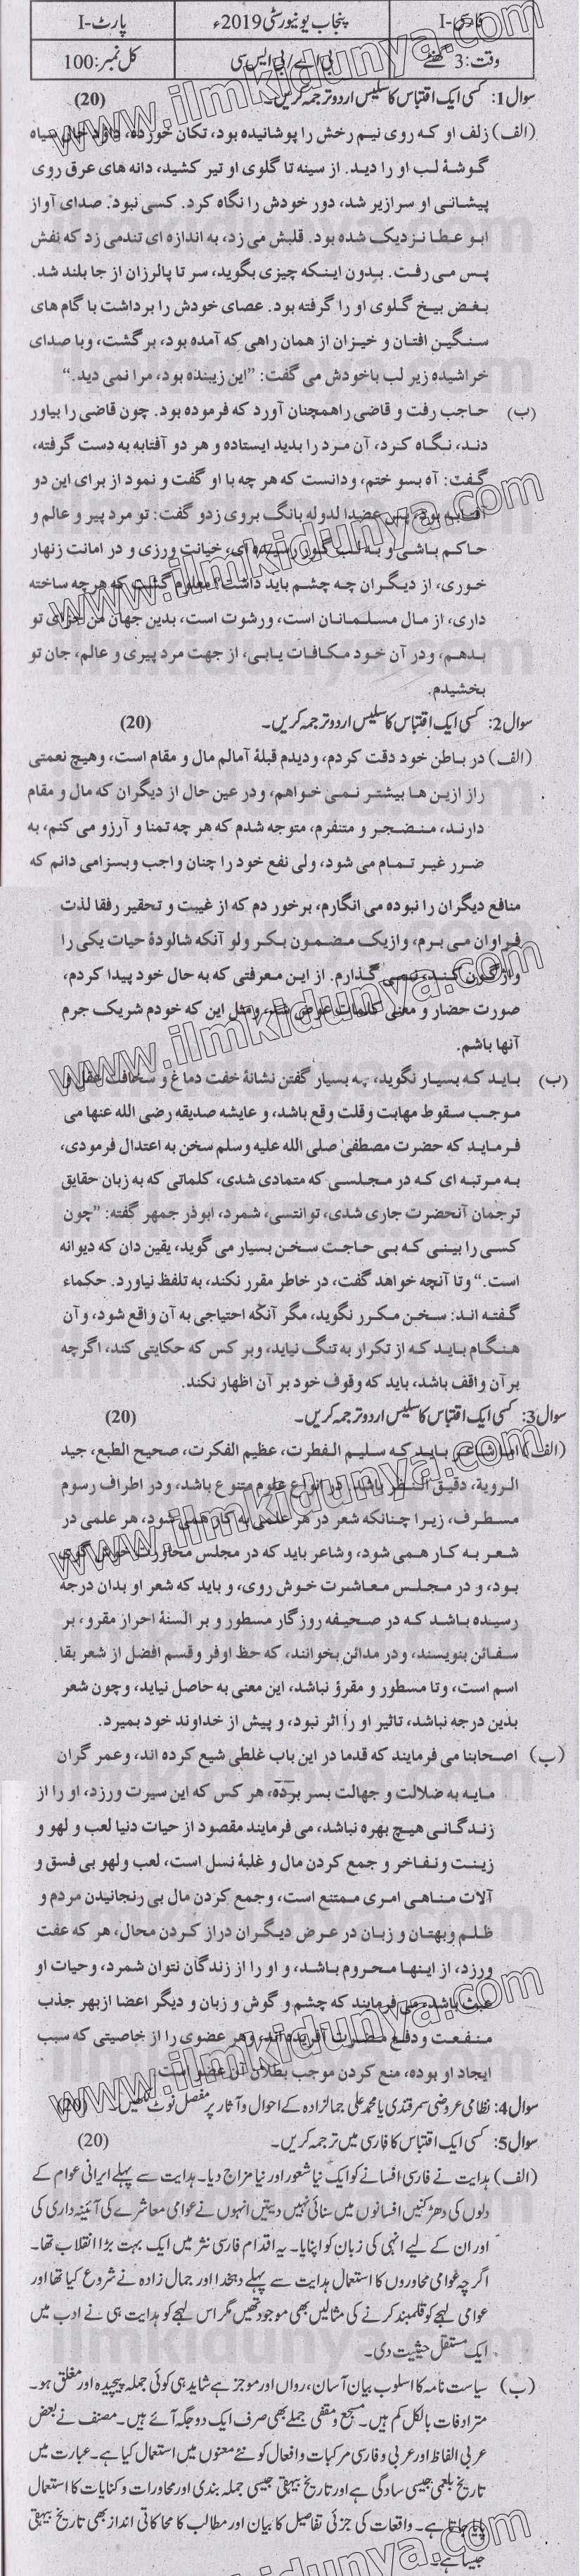 فارسی-I پنجاب یونیورسٹی 2019ء پارٹ-I
وقت: 3 گھنٹے بی اے/بی ایس سی کل نمبر: 100
سوال 1: کسی ایک اقتباس کا سلیس اردو ترجمہ کریں۔ (20)
(الف) زلف او که روی نیم رخش را پوشانیده بود، تکان خورده، دارد خال سیاه
گوشۀ لب او را دید. از سینه تا گلوی او تیر کشید، دانه های عرق روی
پیشانی او سرازیر شد، دور خودش را نگاه کرد. کسی نبود. صدای آواز
ابو عطا نزدیک شده بود. قلبش می زد، به اندازه ای تند می زد که نفش
پس می رفت. بدون اینکه چیزی بگوید، سر تا پا لرزان از جا بلند شد.
بغض بیخ گلوی او را گرفته بود. عصای خودش را برداشت با گام های
سنگین افتان و خیزان از همان راهی که آمده بود، برگشت، وبا صدای
خراشیده زیر لب باخودش می گفت: ”این زینده بود، مرا نمی دید.“
(ب) حاجب رفت و قاضی راهمچنان آورد که فرموده بود. چون قاضی را بیاور
دند، نگاه کرد، آن مرد را بدید ایستاده و هر دو آفتابه به دست گرفته،
گفت: آه بسو ختم، ودانست که هر چه با او گفت و نمود از برای این دو
آفتابه بود، پس عضدا لدوله بانگ بروی زدو گفت: تو مرد پیر و عالم و
حاکم باشی و به لب گور رسیده ای، خیانت ورزی و در امانت زنهار
خوری، از دیگران چه چشم باید داشت؟ معلوم گشت که هرچه ساخته
داری، از مال مسلمانان است، ورشوت است، بدین جهان من جزای تو
بدهم، ودر آن خود مکافات یابی، از جهت مرد پیری و عالم، جان تو
بخشیدم.
سوال 2: کسی ایک اقتباس کا سلیس اردو ترجمہ کریں۔ (20)
(الف) در باطن خود دقت کردم، ودیدم قبلۀ آمالم مال و مقام است، وهیچ نعمتی
راز ازین ها بیشتر نمی خواهم، ودر عین حال از دیگران که مال و مقام
دارند، منضجر و متنفرم، متوجه شدم که هر چه تمنا و آرزو می کنم، به
ضرر غیر تمام می شود، ولی نفع خود را چنان واجب وبسزامی دانم که
منافع دیگران را نبوده می انگارم، برخور دم که از غیبت و تحقیر رفقا لذت
فراوان می برم، وازیک مضمون بکر ولو آنکه شالودۀ حیات یکی را
واژگون کند، نمی گذارم. از این معرفتی که به حال خود پیدا کردم،
صورت حضار و معنی کلمات عوض شد، ومثل این که خودم شریک جرم
آنها باشم.
(ب) باید که بسیار نگوید، چه بسیار گفتن نشانۀ خفت دماغ و سخافت عقل و
موجب سقوط مهابت وقلت وقع باشد، و عایشه صدیقه رضی الله عنها می
فرماید که حضرت مصطفیٰ صلی الله علیه وسلم سخن به اعتدال فرمودی،
به مرتبه ای که در مجلسی که متمادی شدی، کلماتی که به زبان حقایق
ترجمان آنحضرت جاری شدی، توانتسی، شمرد، ابوذر جمهر گفته: ”چون
کسی را بینی که بی حاجت سخن بسیار می گوید، یقین دان که دیوانه
است.“ وتا آنچه خواهد گفت، در خاطر مقرر نکند، به تلفظ نیاورد. حکماء
گفته اند: سخن مکرر نگوید، مگر آنکه احتیاجی به آن واقع شود، وآن
هنگام باید که از تکرار به تنگ نیاید، وبر کس که حکایتی کند، اگرچه
برآن واقف باشد، باید که وقوف خود بر آن اظهار نکند.
سوال 3: کسی ایک اقتباس کا سلیس اردو ترجمہ کریں۔ (20)
(الف) اما شاعر باید که سلیم الفطرت، عظیم الفکرت، صحیح الطبع، جید
الرویة، دقیق النظر باشد. در انواع علوم متنوع باشد، ودر اطراف رسوم
مسطرف، زیرا چنانکه شعر در هر علمی به کار همی شود، هر علمی در
شعر به کار همی شود، وشاعر باید که در مجلس محاورت خوش گوی
بود، و در مجلس معاشرت خوش روی، و باید که شعر او بدان درجه
رسیده باشد که در صحیفه روزگار مسطور و بر السنۀ احرار مقرو، بر
سفائن بنویسند، ودر مدائن بخوانند، که حظ اوفر وقسم افضل از شعر بقا
اسم است، وتا مسطور و مقرؤ نباشد، این معنی به حاصل نیاید، وچون شعر
بدین درجه نباشد، تاثیر او را اثر نبود، و پیش از خداوند خود بمیرد.
(ب) اصحابنا می فرمایند که قدما در این باب غلطی شیع کرده اند، وعمر گران
مایه به ضلالت و جهالت بسر برده، هر کس که این سیرت ورزد، او را از
زندگانی هیچ بهره نباشد، می فرمایند مقصود از حیات دنیا لعب و لهو و
زینت وتفاخر و جمع کردن مال و غلبۀ نسل است، لعب ولهو بی فسق و
آلات مناهی امری ممتنع است، وجمع کردن مال بی رنجانیدن مردم و
ظلم وبهتان و زبان در عرض دیگران دراز کردن محال، هر که عفت
ورزد، از اینها محروم باشد، و او را از زندگان نتوان شمرد، وحیات او
عبث باشد، می فرمایند که چشم و گوش و زبان و دیگر اعضا ازبهر جذب
منفعت ودفع مضرت آفریده اند، وهر عضوی را از خاصیتی که سبب
ایجاد او بوده، منع کردن موجب بطلان آن عضو است.
سوال 4: نظامی عروضی سمرقندی یا محمد علی جمالزادہ کے احوال و آثار پر مفصل نوٹ لکھیں۔ (20)
سوال 5: کسی ایک اقتباس کا فارسی میں ترجمہ کریں۔ (20)
(الف) ہدایت نے فارسی افسانے کو ایک نیا شعور اور نیا مزاج دیا۔ ہدایت سے پہلے ایرانی عوام کے
دلوں کی دھڑکنیں افسانوں میں سنائی نہیں دیتیں انہوں نے عوامی معاشرے کی آئینہ داری کی
اور ان کے لیے انہی کی زبان کو اپنایا۔ یہ اقدام فارسی نثر میں ایک بہت بڑا انقلاب تھا۔
اگرچہ عوامی محاوروں کا استعمال ہدایت سے پہلے دہخدا اور جمال زادہ نے شروع کیا تھا اور
عوامی لہجے کو قلمبند کرنے کی مثالیں بھی موجود تھیں مگر اس لہجے کو ہدایت ہی نے ادب میں
ایک مستقل حیثیت دی۔
(ب) سیاست نامہ کا اسلوب بیان آسان، رواں اور موجز ہے شاید ہی کوئی جملہ پیچیدہ اور مغلق ہو۔
مترادفات بالکل کم ہیں۔ مسجع و مقفی جملے بھی صرف ایک دو جگہ آئے ہیں۔ مصنف نے بعض
عربی الفاظ اور عربی و فارسی مرکبات و افعال کو نئے معنوں میں استعمال کیا ہے۔ عبارت میں
تاریخ بلعمی جیسی سادگی ہے اور تاریخ بیہقی جیسی جملہ بندی اور محاورات و کنایات کا استعمال
پایا جاتا ہے۔ واقعات کی جزئی تفاصیل کا بیان اور مطالب کا محاکاتی انداز بھی تاریخ بیہقی
جیسا ہے۔
www.ilmkidunya.com